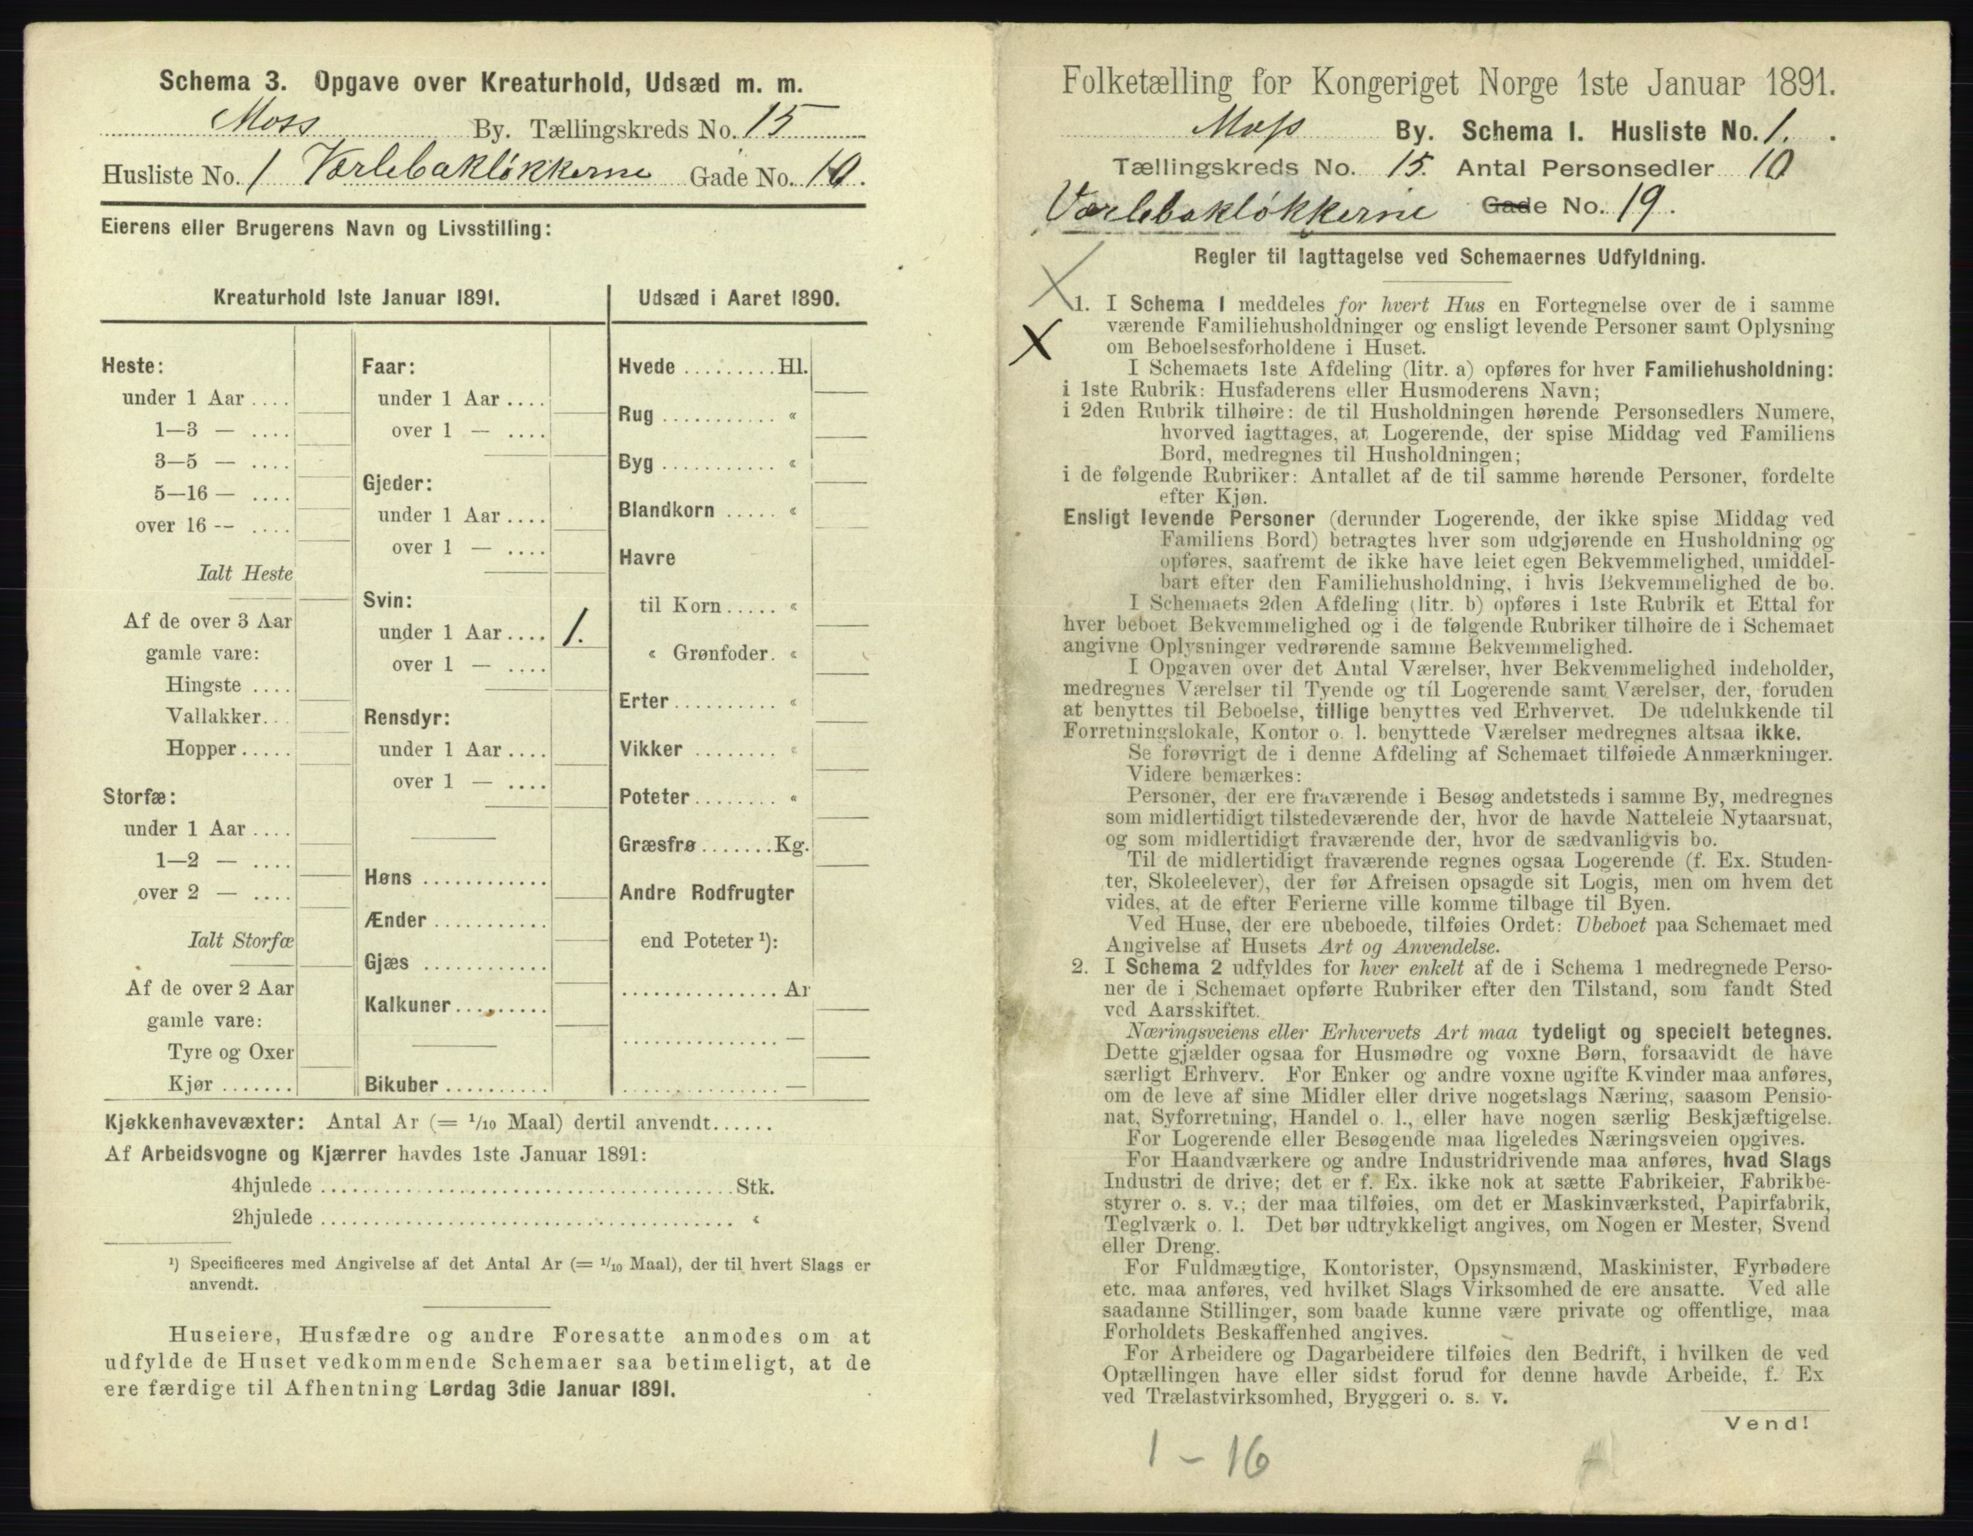 Schema 3. Opgave over Kreaturhold, Udsæd m. m.
Moss By. Tællingskreds No. 15
Husliste No. 1 Værlebakløkkerne Gade No. 10.
Eierens eller Brugerens Navn og Livsstilling:
Kreaturhold 1ste Januar 1891.
Heste:
under 1 Aar ....
1—3 — ....
3—5 — ....
5—16 — ....
over 16 -- ....
Ialt Heste
Af de over 3 Aar
gamle vare:
Hingste ....
Vallakker...
Hopper.....
Storfæ:
under 1 Aar ....
1—2 — ....
over 2 — ....
Ialt Storfæ
Af de over 2 Aar
gamle vare:
Tyre og Oxer
Kjør .......
Faar:
under 1 Aar ....
over 1 — ....
Gjeder:
under 1 Aar ....
over 1 — ....
Svin:
under 1 Aar .... 1.
over 1 — ....
Rensdyr:
under 1 Aar ....
over 1 — ....
Høns ............
Ænder ...........
Gjæs ............
Kalkuner.........
Bikuber ..........
Udsæd i Aaret 1890.
Hvede .........Hl.
Rug ........... «
Byg ........... «
Blandkorn ..... «
Havre
til Korn..... «
« Grønfoder. «
Erter.......... «
Vikker ........ «
Poteter........ «
Græsfrø .......Kg.
Andre Rodfrugter
end Poteter ¹):
...............Ar
............... —
............... —
Kjøkkenhavevæxter: Antal Ar (= 1/10 Maal) dertil anvendt......
Af Arbeidsvogne og Kjærrer havdes 1ste Januar 1891:
4hjulede .......................................Stk.
2hjulede ....................................... «
¹) Specificeres med Angivelse af det Antal Ar (= 1/10 Maal), der til hvert Slags er
anvendt.
Huseiere, Husfædre og andre Foresatte anmodes om at
udfylde de Huset vedkommende Schemaer saa betimeligt, at de
ere færdige til Afhentning Lørdag 3die Januar 1891.
Folketælling for Kongeriget Norge 1ste Januar 1891.
Moss By. Schema I. Husliste No. 1.
Tællingskreds No. 15. Antal Personsedler 10
Værlebakløkkerne Gade No. 19.
Regler til Iagttagelse ved Schemaernes Udfyldning.
X
X
1. I Schema I meddeles for hvert Hus en Fortegnelse over de i samme
værende Familiehusholdninger og ensligt levende Personer samt Oplysning
om Beboelsesforholdene i Huset.
I Schemaets 1ste Afdeling (litr. a) opføres for hver Familiehusholdning:
i 1ste Rubrik: Husfaderens eller Husmoderens Navn;
i 2den Rubrik tilhøire: de til Husholdningen hørende Personsedlers Numere,
hvorved iagttages, at Logerende, der spise Middag ved Familiens
Bord, medregnes til Husholdningen;
i de følgende Rubriker: Antallet af de til samme hørende Personer, fordelte
efter Kjøn.
Ensligt levende Personer (derunder Logerende, der ikke spise Middag ved
Familiens Bord) betragtes hver som udgjørende en Husholdning og
opføres, saafremt de ikke have leiet egen Bekvemmelighed, umiddel-
bart efter den Familiehusholdning, i hvis Bekvemmelighed de bo.
I Schemaets 2den Afdeling (litr. b) opføres i 1ste Rubrik et Ettal for
hver beboet Bekvemmelighed og i de følgende Rubriker tilhøire de i Schemaet
angivne Oplysninger vedrørende samme Bekvemmelighed.
I Opgaven over det Antal Værelser, hver Bekvemmelighed indeholder,
medregnes Værelser til Tyende og til Logerende samt Værelser, der, foruden
at benyttes til Beboelse, tillige benyttes ved Erhvervet. De udelukkende til
Forretningslokale, Kontor o. l. benyttede Værelser medregnes altsaa ikke.
Se forøvrigt de i denne Afdeling af Schemaet tilføiede Anmærkninger.
Videre bemærkes:
Personer, der ere fraværende i Besøg andetsteds i samme By, medregnes
som midlertidigt tilstedeværende der, hvor de havde Natteleie Nytaarsnat,
og som midlertidigt fraværende der, hvor de sædvanligvis bo.
Til de midlertidigt fraværende regnes ogsaa Logerende (f. Ex. Studen-
ter, Skoleelever), der før Afreisen opsagde sit Logis, men om hvem det
vides, at de efter Ferierne ville komme tilbage til Byen.
Ved Huse, der ere ubeboede, tilføies Ordet: Ubeboet paa Schemaet med
Angivelse af Husets Art og Anvendelse.
2. I Schema 2 udfyldes for hver enkelt af de i Schema 1 medregnede Perso-
ner de i Schemaet opførte Rubriker efter den Tilstand, som fandt Sted
ved Aarsskiftet.
Næringsveiens eller Erhvervets Art maa tydeligt og specielt betegnes.
Dette gjælder ogsaa for Husmødre og voxne Børn, forsaavidt de have
særligt Erhverv. For Enker og andre voxne ugifte Kvinder maa anføres,
om de leve af sine Midler eller drive nogetslags Næring, saasom Pensio-
nat, Syforretning, Handel o. l., eller have nogen særlig Beskjæftigelse.
For Logerende eller Besøgende maa ligeledes Næringsveien opgives.
For Haandværkere og andre Industridrivende maa anføres, hvad Slags
Industri de drive; det er f. Ex. ikke nok at sætte Fabrikeier, Fabrikbe-
styrer o. s. v.; der maa tilføies, om det er Maskinværksted, Papirfabrik,
Teglværk o. l. Det bør udtrykkeligt angives, om Nogen er Mester, Svend
eller Dreng.
For Fuldmægtige, Kontorister, Opsynsmænd, Maskinister, Fyrbødere
etc. maa anføres, ved hvilket Slags Virksomhed de ere ansatte. Ved alle
saadanne Stillinger, som baade kunne være private og offentlige, maa
Forholdets Beskaffenhed angives.
For Arbeidere og Dagarbeidere tilføies den Bedrift, i hvilken de ved
Optællingen have eller sidst forud for denne havde Arbeide, f. Ex
ved Trælastvirksomhed, Bryggeri o. s. v.
Vend!
1 - 16